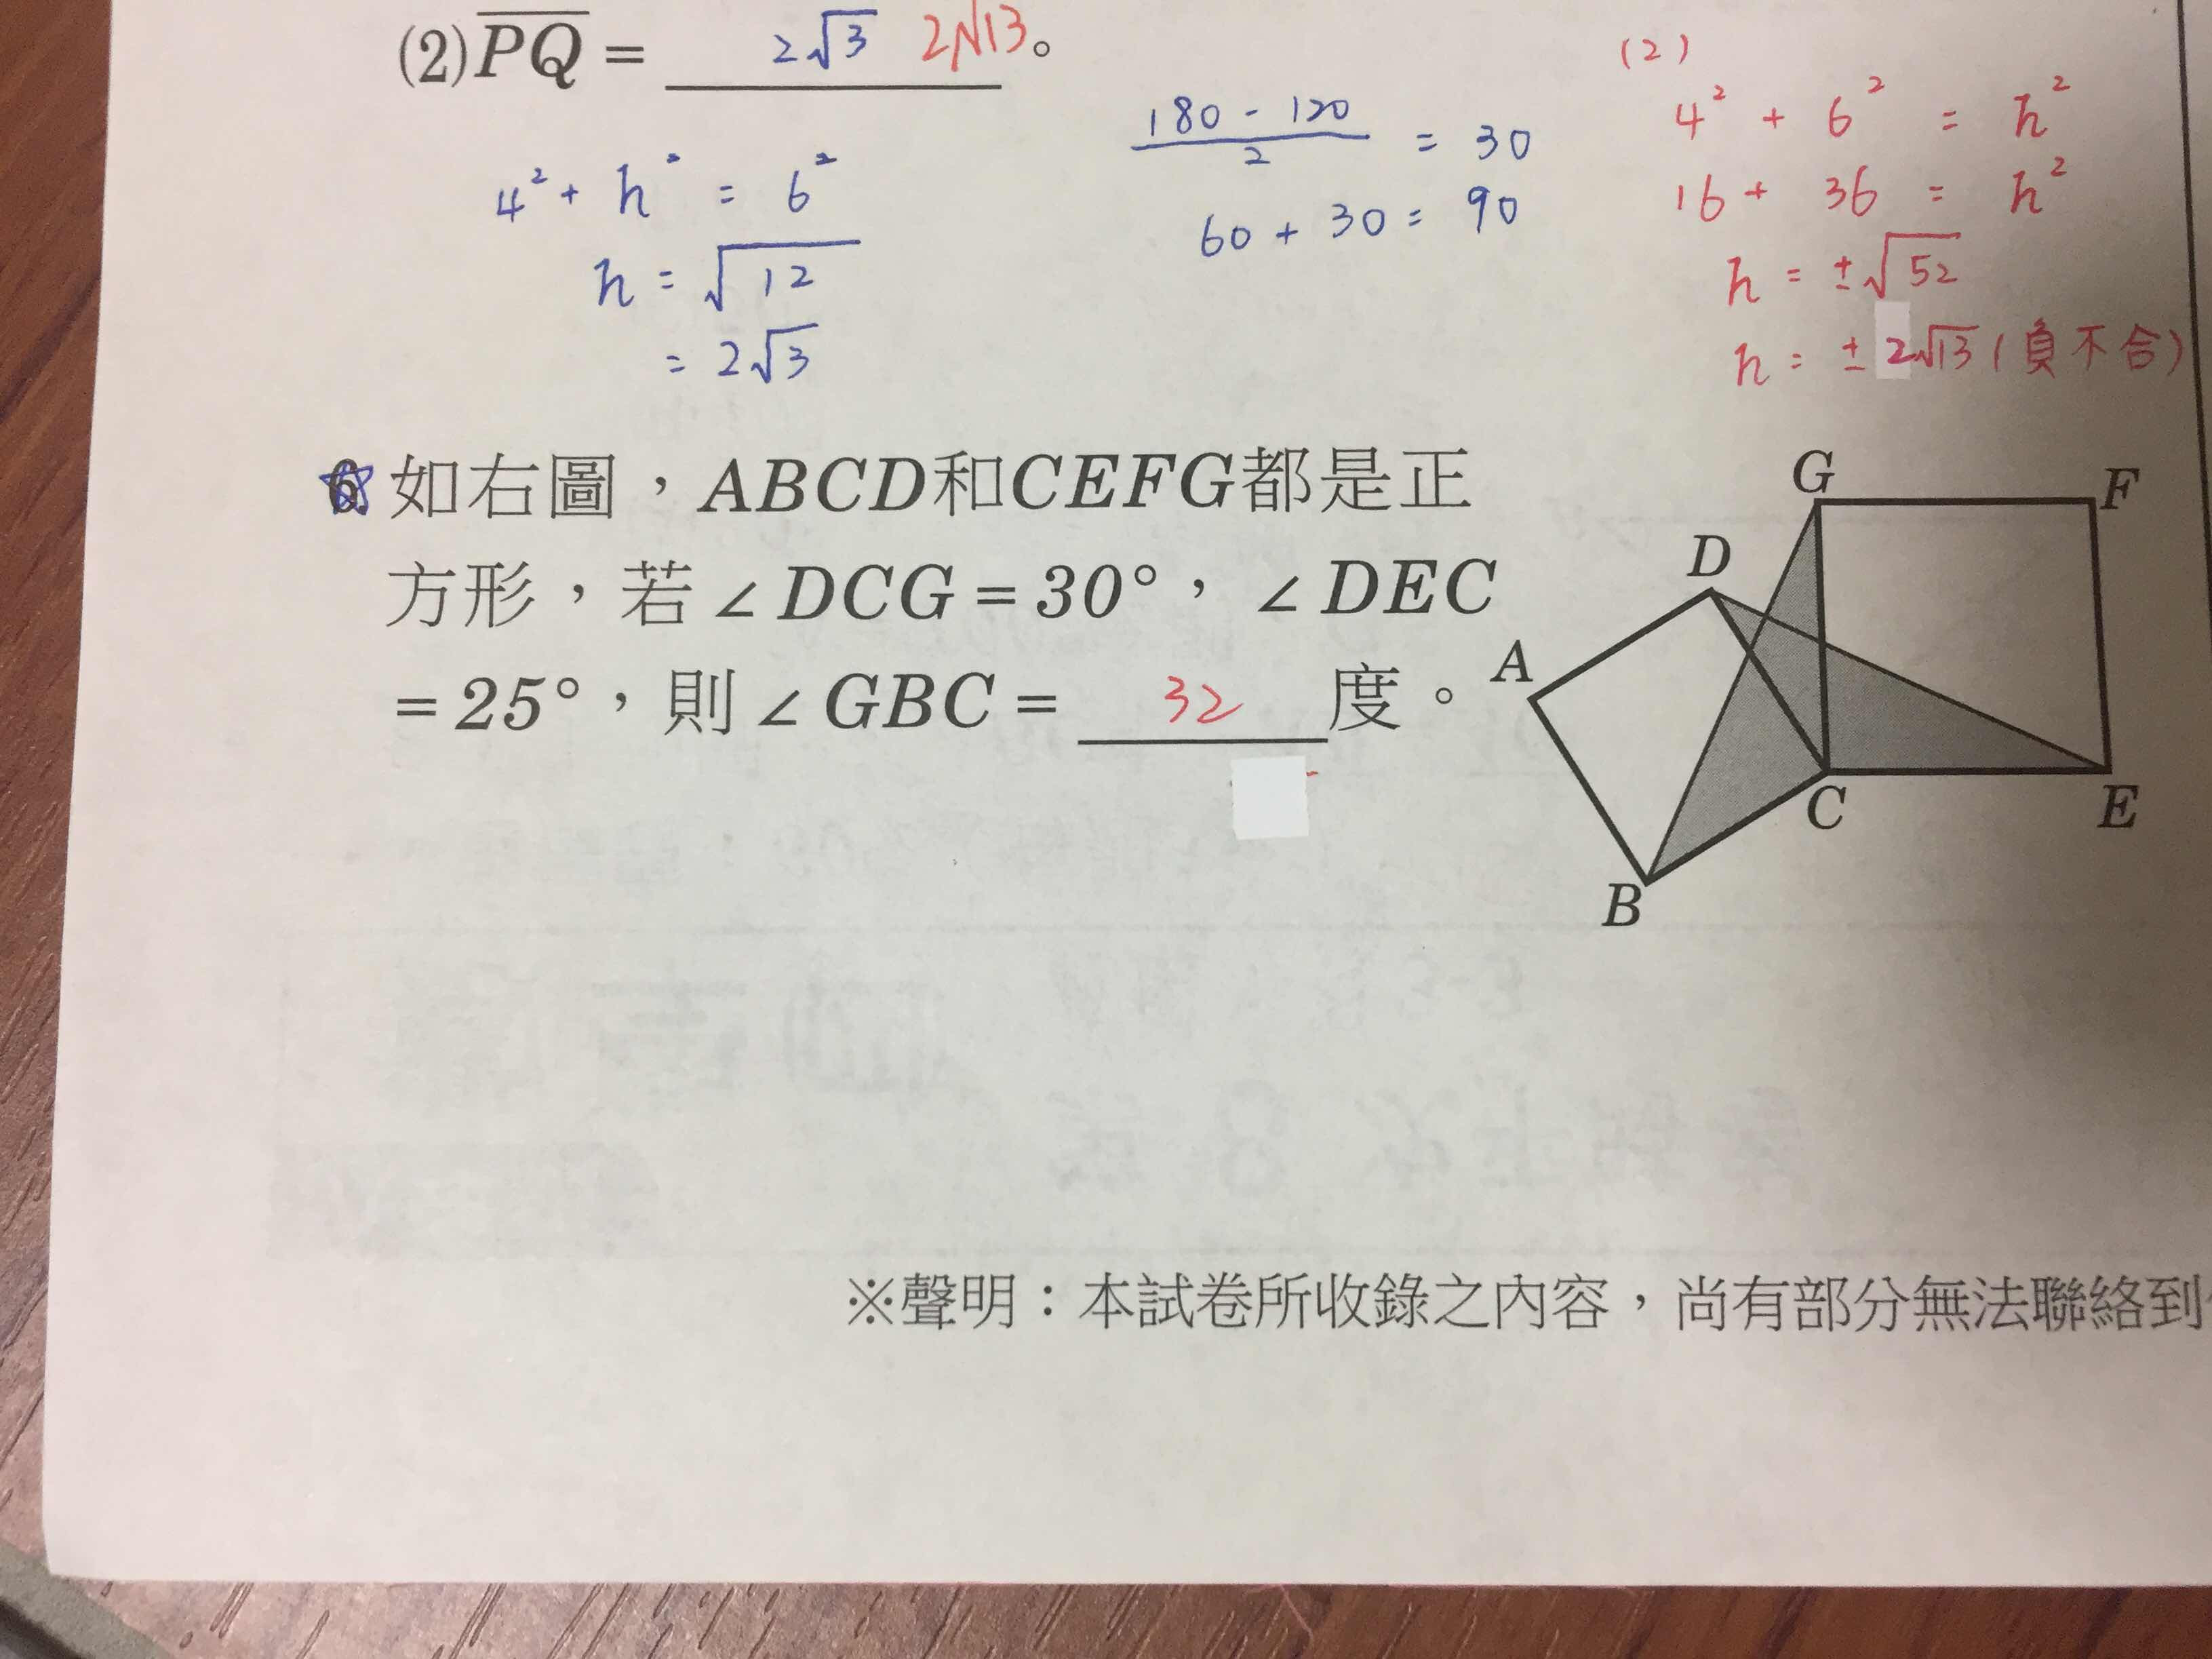 (2)PQ = 2√3 2√13。
4² + h² = 6²
h = √12
= 2√3
180 - 120 / 2 = 30
60 + 30 = 90
(2)
4² + 6² = h²
16 + 36 = h²
h = ±√52
h = ± 2√13 (負不合)
6. 如右圖，ABCD和CEFG都是正
方形，若∠DCG = 30°，∠DEC
= 25°，則∠GBC = 32 度。
G
F
D
A
C
E
B
※聲明：本試卷所收錄之內容，尚有部分無法聯絡到